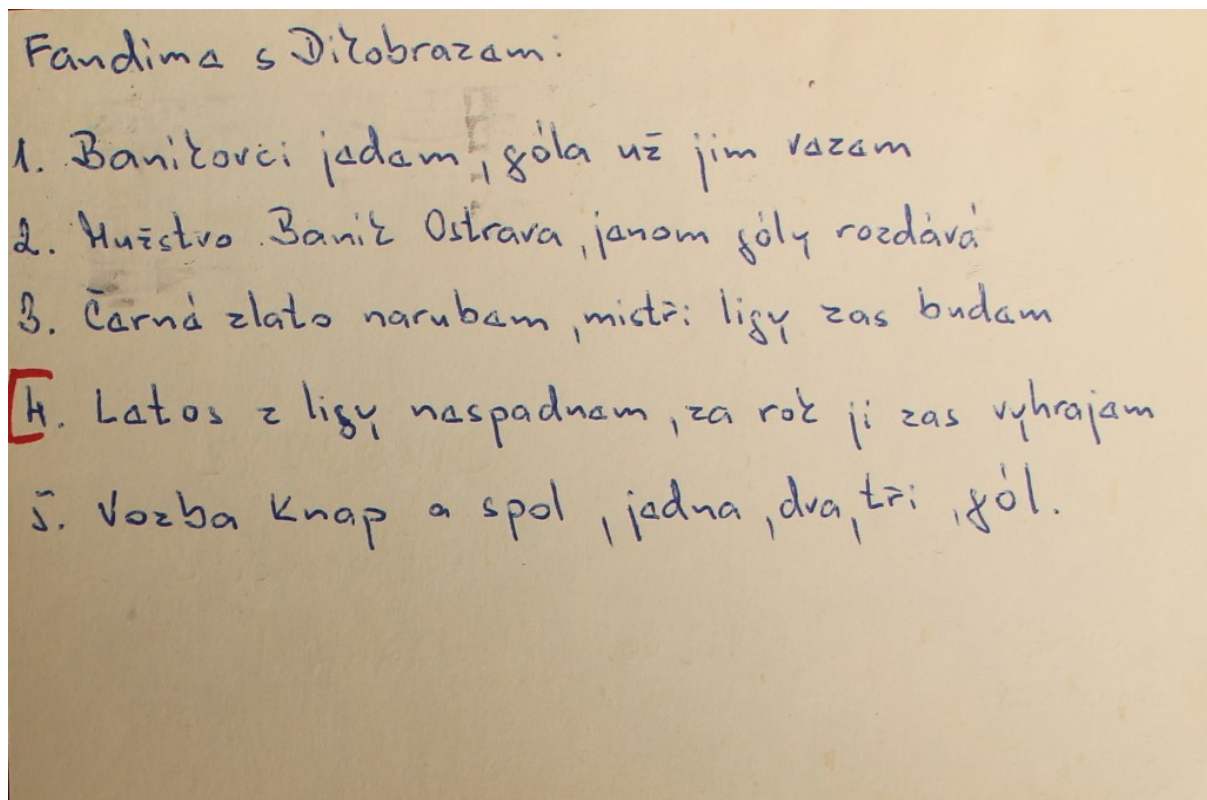 Fandíme s Dikobrazem:
1. Baníkovci jedem, góla už jim vezem
2. Mužstvo Baník Ostrava, jenom góly rozdává
3. Černé zlato narubem, mistři ligy zas budem
4. Letos z ligy nespadnem, za rok ji zas vyhrajem
5. Vozba Knap a spol, jedna, dva, tři, gól.